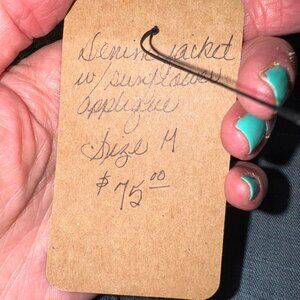 Denim jacket
w/ sunflower
applique
Size M
$75.00